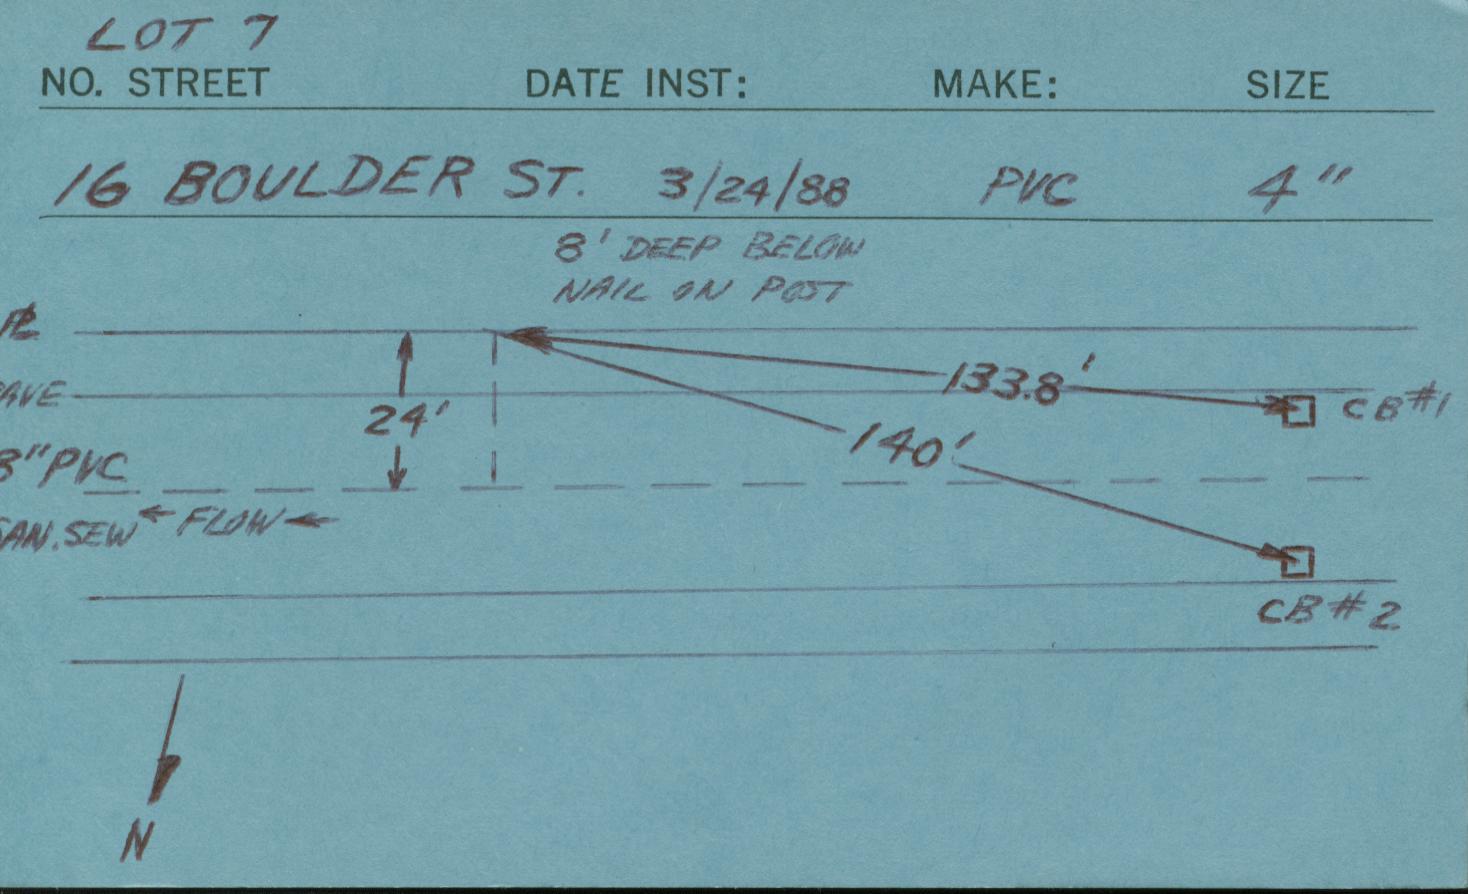 LOT 7
NO. STREET DATE INST: MAKE: SIZE
16 BOULDER ST. 3/24/88 PVC 4"
8' DEEP BELOW
NAIL ON POST
PL
133.8'
AVE
CB#1
24'
140'
8" PVC
SAN. SEW ← FLOW ←
CB#2
N